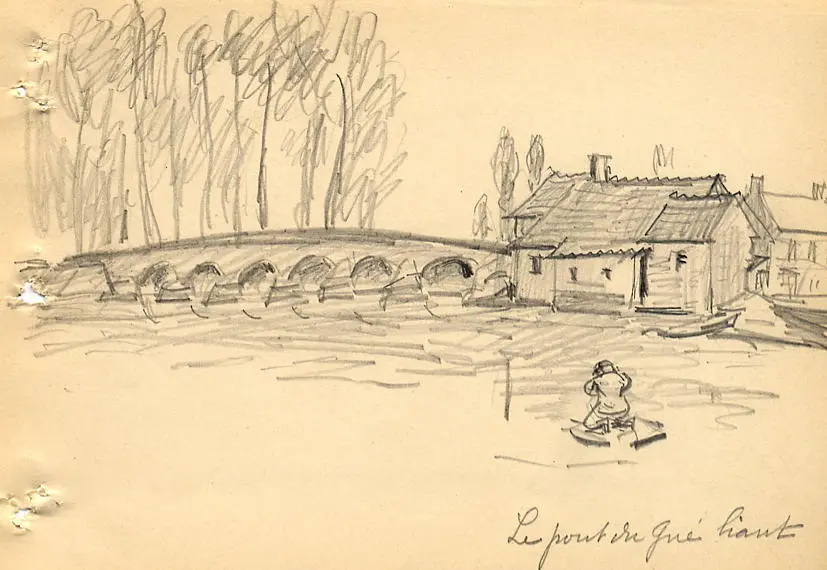 Le pont du Gué liant